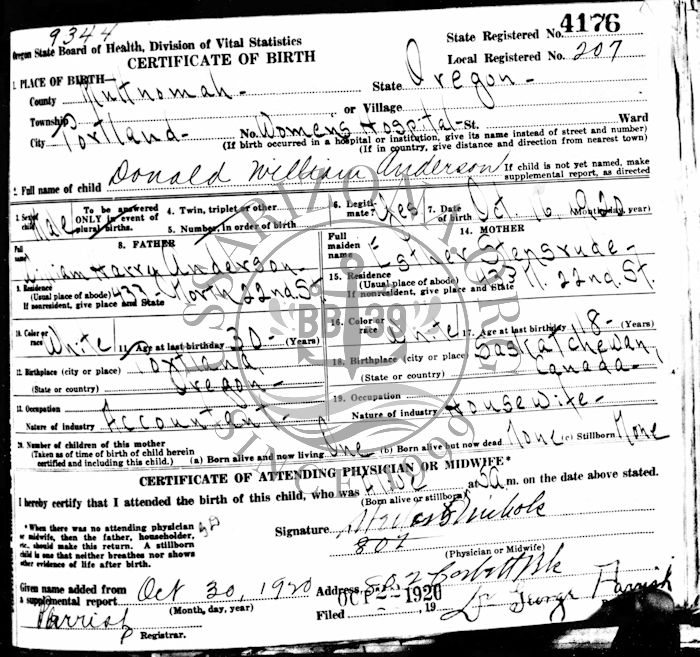 9344
Oregon State Board of Health, Division of Vital Statistics
CERTIFICATE OF BIRTH
State Registered No. 4176
Local Registered No. 207
1. PLACE OF BIRTH—
County Multnomah - State Oregon -
Township or Village
City Portland - No. Womens Hospital - St. Ward
(If birth occurred in a hospital or institution, give its name instead of street and number)
(If in country, give distance and direction from nearest town)
2. Full name of child Donald William Anderson
If child is not yet named, make supplemental report, as directed
3. Sex of child Male
To be answered ONLY in event of plural births.
4. Twin, triplet or other
5. Number, in order of birth
6. Legitimate? Yes
7. Date of birth Oct. 16 1920
(Month, day, year)
8. FATHER
Full name William Harry Anderson -
9. Residence
(Usual place of abode) 433 North 22nd. St.
If nonresident, give place and State
10. Color or race White
11. Age at last birthday 30 - (Years)
12. Birthplace (city or place) Portland
(State or country) Oregon -
13. Occupation
Nature of industry Accountant -
14. MOTHER
Full maiden name Esther Stensrude -
15. Residence
(Usual place of abode) 433 N. 22nd. St.
If nonresident, give place and State
16. Color or race White
17. Age at last birthday 18 - (Years)
18. Birthplace (city or place) Saskatchewan,
(State or country) Canada -
19. Occupation
Nature of industry Housewife -
20. Number of children of this mother
(Taken as of time of birth of child herein
certified and including this child.)
(a) Born alive and now living One (b) Born alive but now dead None (c) Stillborn None
CERTIFICATE OF ATTENDING PHYSICIAN OR MIDWIFE*
I hereby certify that I attended the birth of this child, who was Alive at m. on the date above stated.
(Born alive or stillborn)
*When there was no attending physician
or midwife, then the father, householder,
etc., should make this return. A stillborn
child is one that neither breathes nor shows
other evidence of life after birth.
Signature Nichols
807
(Physician or Midwife)
Given name added from
a supplemental report Oct 30, 1920
(Month, day, year)
Parrish
Registrar.
Address Corbett Blk
Filed OCT 1920, 19
George Parrish
USSARIZONA.ORG
BB 39
SINCE 1996